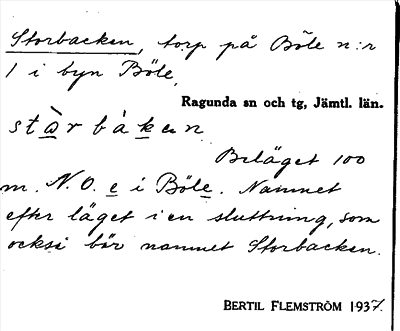 Storbacken, torp på Böle n:r
1 i byn Böle,
Ragunda sn och tg, Jämtl. län.
Beläget 100
m. N.O. e i Böle. Namnet
efter läget i en sluttning, som
också bär namnet Storbacken.
BERTIL FLEMSTRÖM 1937.